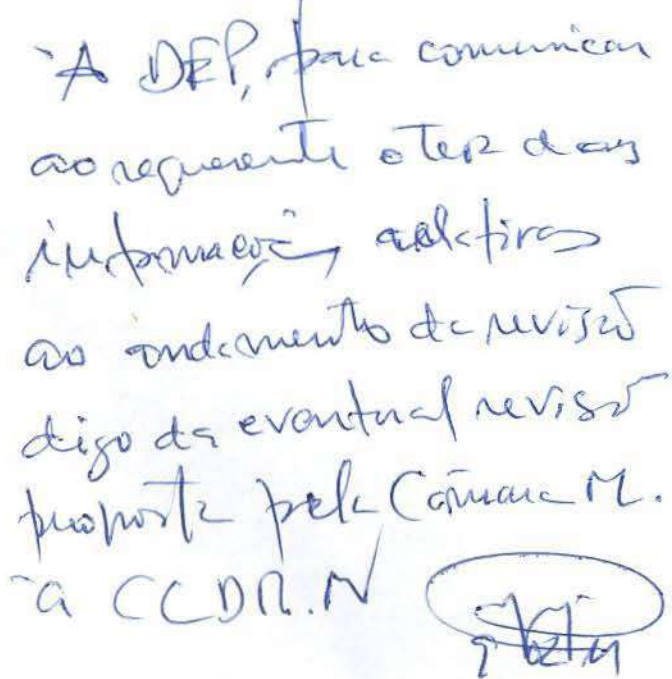 À DEP, para comunicar
ao requerente o teor das
informações relativas
ao andamento da revisão
digo da eventual revisão
proposta pela Câmara M.
à CCDR.N